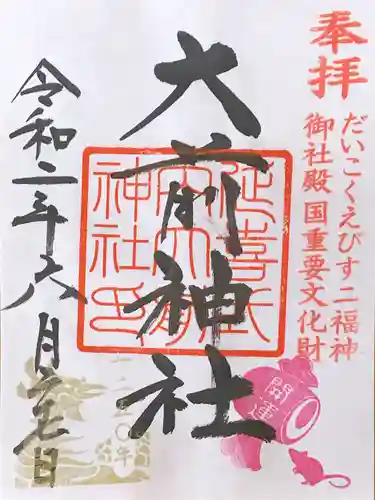 奉拝
だいこくえびす二福神
御社殿国重要文化財
大前神社
延喜式
内大前
神社印
開運
令和二年六月廿七日